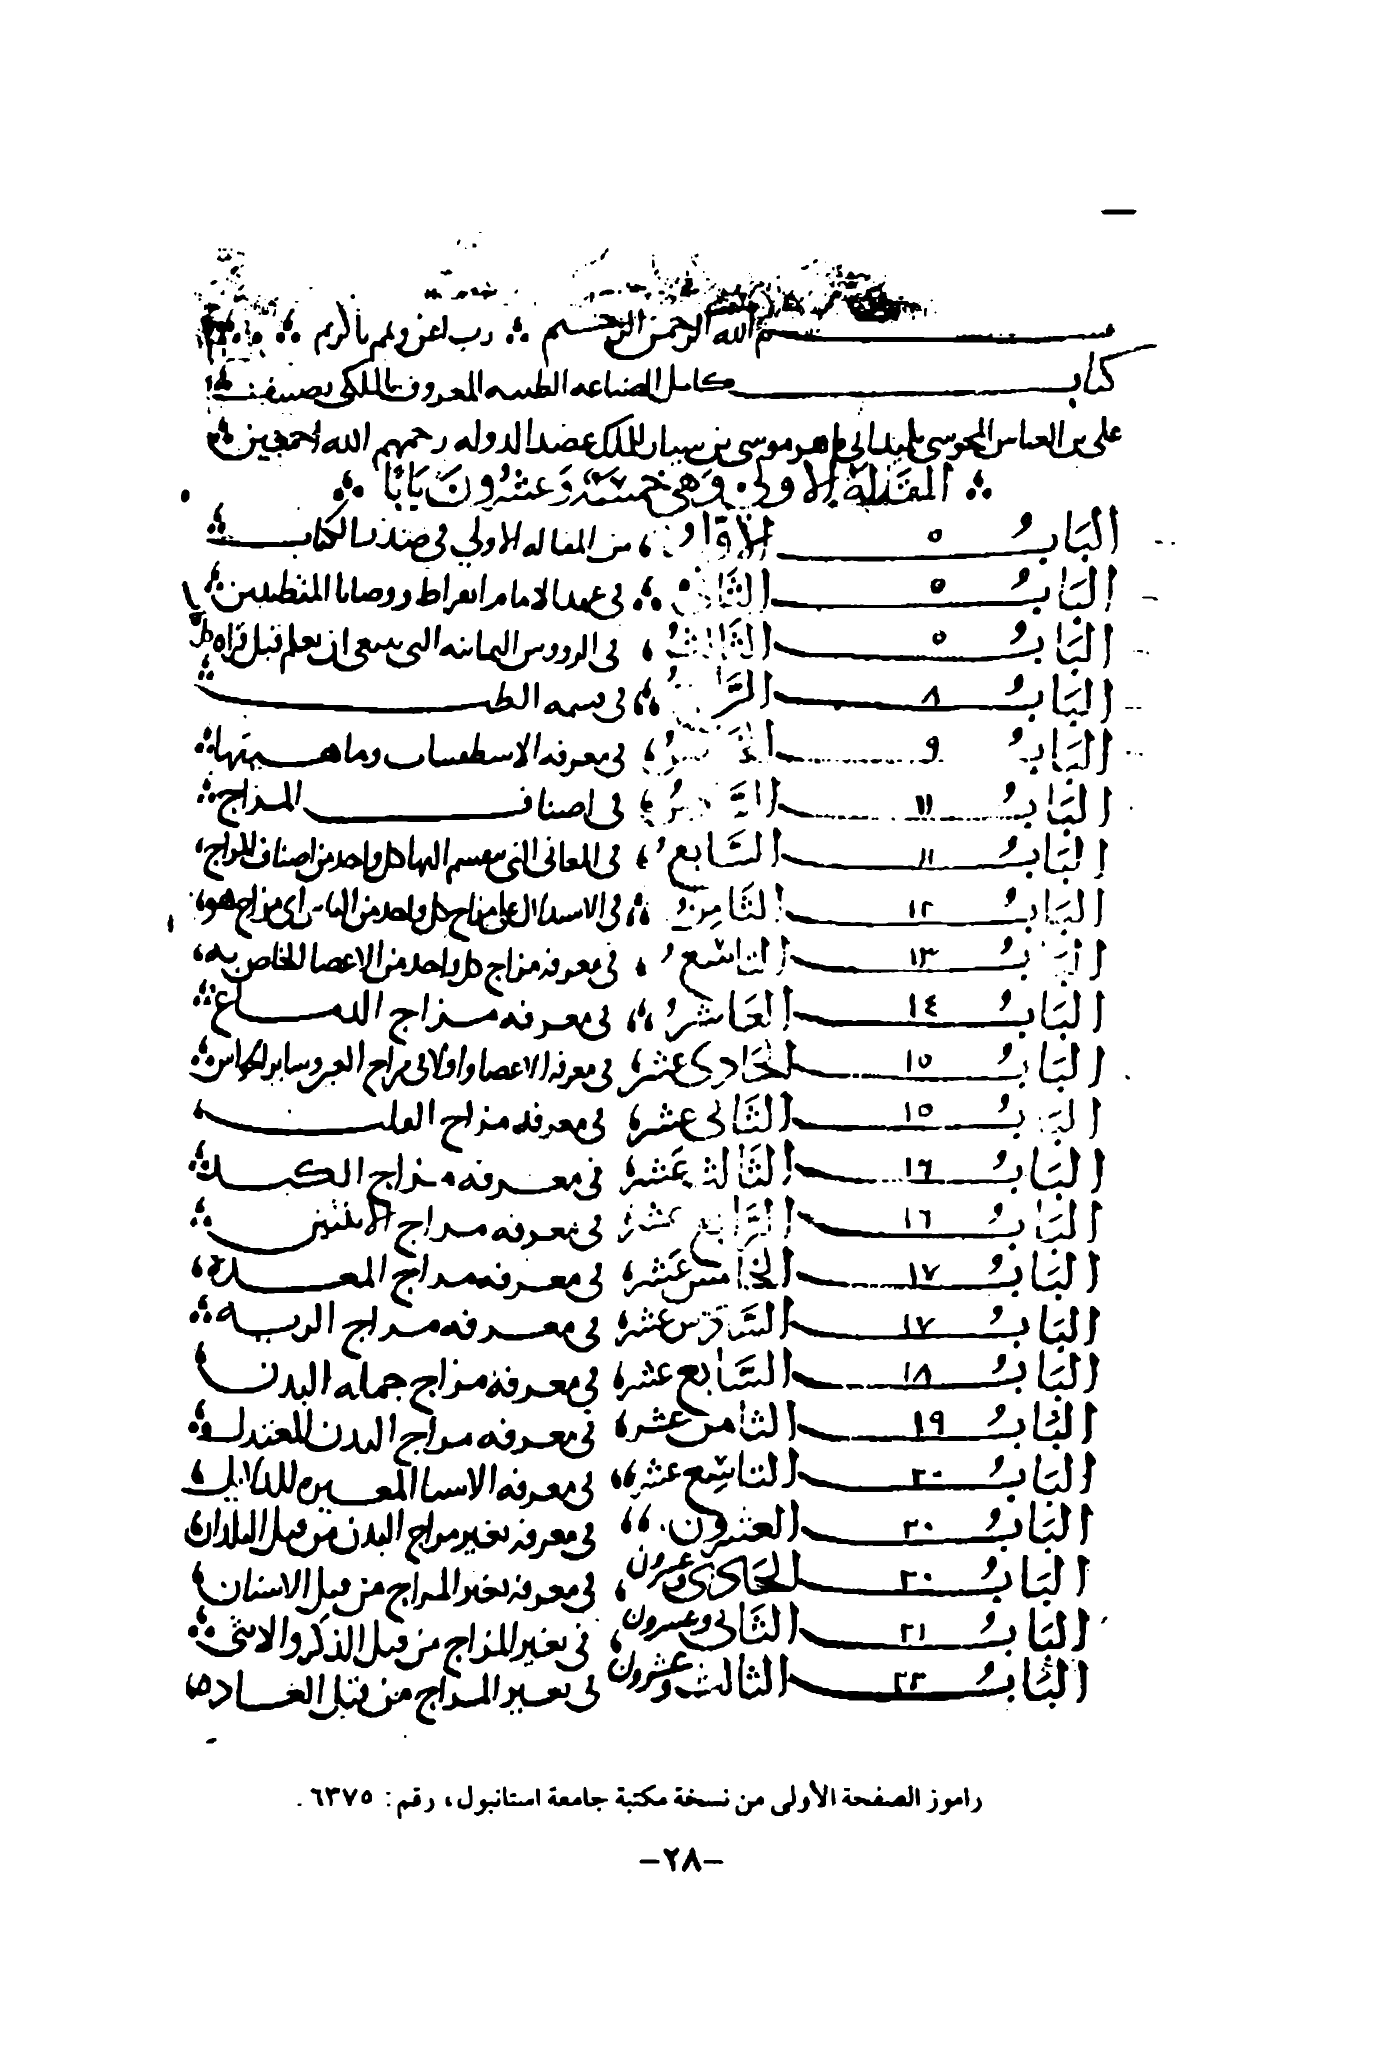 بسم الله الرحمن الرحيم رب اعن وتمم يا كريم
كتاب كامل الصناعه الطبيه المعروف بالملكي تصنيف
علي بن العباس المجوسي تلميذ ابي ماهر موسى بن سيار للملك عضد الدوله رحمهم الله اجمعين
المقالة الاولى وهي خمسة وعشرون بابا
الباب ٥ الاول من المقاله الاولي في صدر الكتاب
الباب ٥ الثاني في عهد الامام ابقراط ووصايا المتطببين
الباب ٥ الثالث في الرووس الثمانيه التي ينبغي ان تعلم قبل قراه كل
الباب ٨ الرابع في قسمه الطب
الباب ٩ الخامس في معرفه الاسطقسات وماهيتها
الباب ١١ السادس في اصناف المزاج
الباب ١١ السابع في المعاني التي ينقسم اليها كل واحد من اصناف المزاج
الباب ١٢ الثامن في الاستدلال على مزاج كل واحد من الناس اي مزاج هو
الباب ١٣ التاسع في معرفه مزاج كل واحد من الاعضا الخاص به
الباب ١٤ العاشر في معرفه مزاج الدماغ
الباب ١٥ الحادي عشر في معرفه الاعضا واولا في مزاج العين وساير الحواس
الباب ١٥ الثاني عشر في معرفه مزاج القلب
الباب ١٦ الثالث عشر في معرفه مزاج الكبد
الباب ١٦ الرابع عشر في معرفه مزاج الانثيين
الباب ١٧ الخامس عشر في معرفه مزاج المعدة
الباب ١٧ السادس عشر في معرفه مزاج الريه
الباب ١٨ السابع عشر في معرفة مزاج جمله البدن
الباب ١٩ الثامن عشر في معرفه مزاج البدن المعتدل
الباب ٢٠ التاسع عشر في معرفه الاسباب المغيره للدلايل
الباب ٢٠ العشرون في معرفه تغيير مزاج البدن من قبل البلدان
الباب ٢٠ الحادي وعشرون في معرفه تغير المزاج من قبل الاسنان
الباب ٢١ الثاني وعشرون في تغيير المزاج من قبل الذكر والانثى
الباب ٢٢ الثالث وعشرون في تغيير المزاج من قبل العاده
راموز الصفحة الأولى من نسخة مكتبة جامعة استانبول، رقم: ٦٣٧٥.
-٢٨-